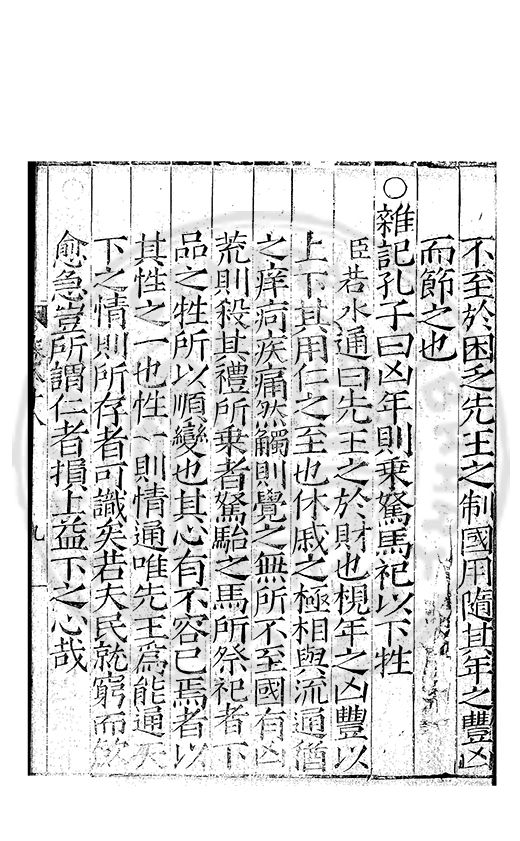 不至於困乏先王之制國用隨其年之豐凶
而節之也
○雜記孔子曰凶年則乘駑馬祀以下牲
臣若水通曰先王之於財也視年之凶豐以
上下其用仁之至也休戚之極相與流通猶
之痒疴疾痛然觸則覺之無所不至國有凶
荒則殺其禮所乘者駑駘之馬所祭祀者下
品之牲所以順變也其心有不容已焉者以
其性之一也性一則情通唯先王為能通天
下之情則所存者可識矣若夫民就窮而斂
愈急豈所謂仁者損上益下之心哉